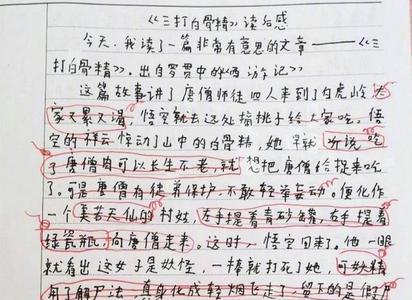 《三打白骨精》读后感
今天,我读了一篇非常有意思的文章——《三
打白骨精》.出自罗贯中的《西游记》
这篇故事讲了唐僧师徒四人来到了白虎岭大
家又累又渴,悟空就去远处摘桃子给大家吃,悟
空的祥云惊动了山中的白骨精,她早就听说吃
了唐僧肉可以长生不老,就想把唐僧给捉来吃
了。可是唐僧有徒弟保护,不敢轻举妄动。便化作
一个美若天仙的村姑,左手提着青砂罐,右手提着
绿瓷瓶,向唐僧走来。这时,悟空回来了。他一眼
就看出这女子是妖怪,一捧就打死了她,可妖精
用了解尸法,真身化成轻烟飞走了,留下的是假尸